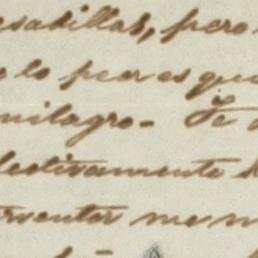 esadillas, pero
lo peor es que
milagro. Te
lectivamente
rventar me